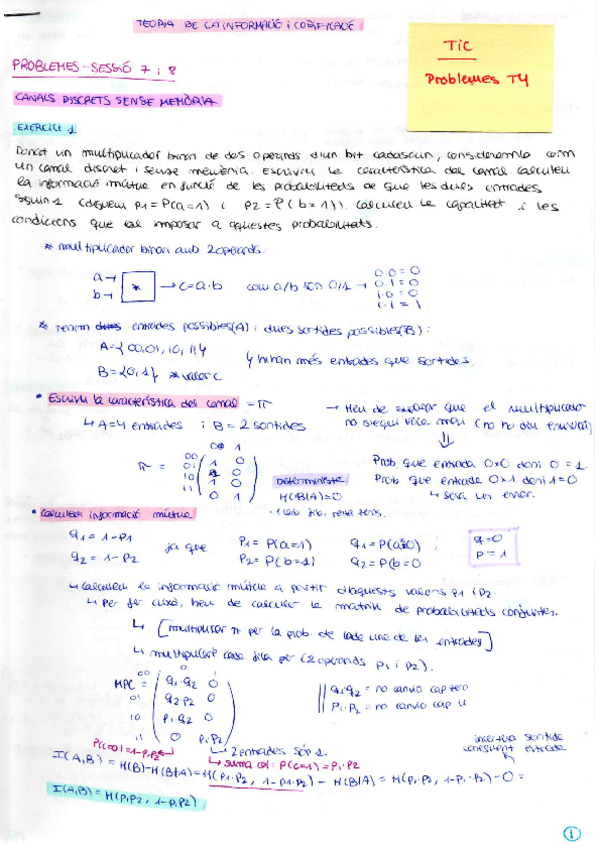 TEORIA DE LA INFORMACIÓ i CODIFICACIÓ
TIC
Problemes T4
PROBLEMES-SESSIÓ 7 i 8
CANALS DISCRETS SENSE MEMÒRIA
EXERCICI 1
Donat un multiplicador binari de dos operands d'un bit cadascun, considerem-lo com
un canal discret i sense memòria. Escriviu la característica del canal. Calculeu
la informació mútua en funció de les probabilitats de que les dues entrades
siguin 1 (diguem P1 = P(a=1) i P2 = P(b=1)). Calculeu la capacitat i les
condicions que cal imposar a aquestes probabilitats.
* multiplicador binari amb 2 operands.
a → * → c=a·b com a/b són 0/1 → 0·0=0
b → 0·1=0
1·0=0
1·1=1
* Tenim entrades possibles (A) i dues sortides possibles (B):
A={00,01,10,11}
B={0,1} * valor c
hi han més entrades que sortides.
• Escriviu la característica del canal = π
→ Heu de suposar que el multiplicador
↳ A=4 entrades i B=2 sortides
no s'equivoca mai (no ho diu enunciat)
0 1
π = 00 1 0
01 1 0
10 1 0
11 0 1
Prob. que entrada 0x0 doni 0 = 1.
Prob que entrada 0x1 doni 1=0
↳ seria un error.
Determinista
H(B|A)=0
• Calculeu informació mútua
q1 = 1-P1
q2 = 1-P2
ja que
P1 = P(a=1)
P2 = P(b=1)
q1 = P(a=0)
q2 = P(b=0
q=0
P=1
↳ Calculeu la informació mútua a partir d'aquests valors P1 i P2.
↳ Per fer això, heu de calcular la matriu de probabilitats conjuntes.
↳ [multiplicar π per la prob. de cada una de les entrades]
↳ multiplicaré cada fila per (2 operands P1 i P2).
0 1
MPC = 00 q1·q2 0
01 q1 P2 0
10 P1·q2 0
11 0 P1·P2
q1·q2 = no canvio cap zero
P1·P2 = no canvio cap u
↳ 2 entrades són 1.
P(c=0)=1-P1·P2
↳ suma col: P(c=1)=P1·P2
I(A,B) = H(B)-H(B|A) = H(P1·P2, 1-P1·P2) - H(B|A) = H(P1·P2, 1-P1·P2)-0 =
I(A,B) = H(P1P2, 1-P1P2)
1